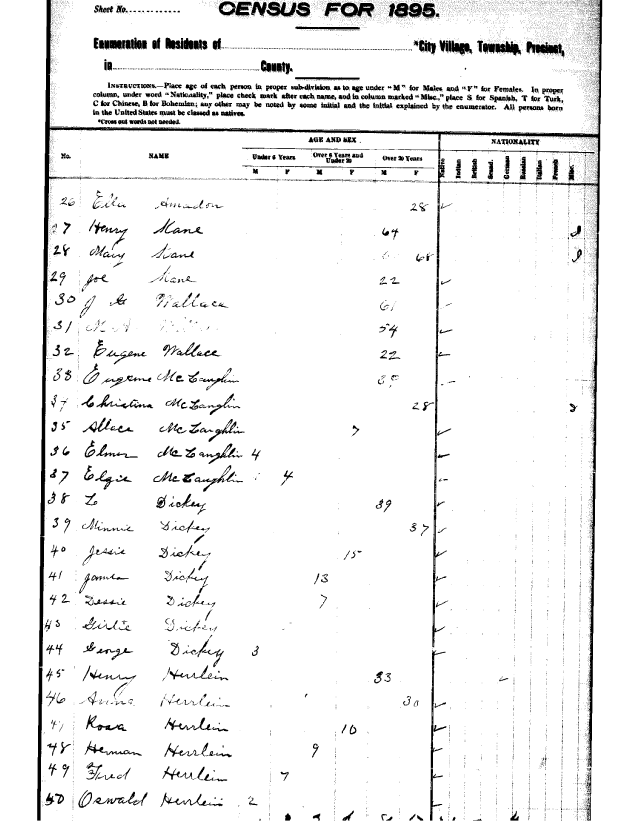 Sheet No.............
CENSUS FOR 1895.
Enumeration of Residents of........................................*City Village, Township, Precinct,
in..............................County.
INSTRUCTIONS.—Place age of each person in proper sub-division as to age under "M" for Males and "F" for Females. In proper
column, under word "Nationality," place check mark after each name, and in column marked "Misc.," place S for Spanish, T for Turk,
C for Chinese, B for Bohemian; any other may be noted by some initial and the initial explained by the enumerator. All persons born
in the United States must be classed as natives.
*Cross out words not needed.
AGE AND SEX. NATIONALITY
No. NAME Under 6 Years Over 6 Years and Under 20 Over 20 Years Native Indian British Scand. German Russian Italian French Misc.
M F M F M F
26 Ella Amadon 28 ✓
27 Henry Kane 64
28 Mary Kane 68
29 Joe Kane 22 ✓
30 J Wallace 61 ✓
31 54 ✓
32 Eugene Wallace 22 ✓
33 Eugene McLaughlin
Christina McLaughlin 28
35 McLaughlin 7 ✓
36 Elmer McLaughlin 4 ✓
37 Elgie McLaughlin 4
38 Dickey 39 ✓
39 Minnie Dickey 37 ✓
40 Jessie Dickey 15 ✓
41 James Dickey 13 ✓
42 Dessie Dickey 7 ✓
43 Girlie Dickey ✓
44 George Dickey 3 ✓
45 Henry Herrlein 33 ✓
46 Anna Herrlein 30 ✓
47 Rosa Herrlein 10 ✓
48 Herman Herrlein 9 ✓
49 Fred Herrlein 7 ✓
50 Oswald Herrlein 2 ✓